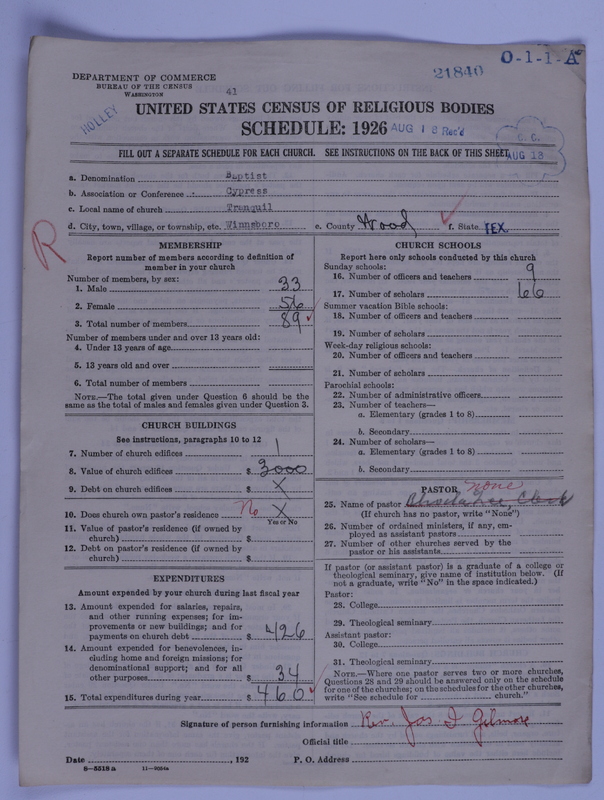 O-1-1-A
21840
DEPARTMENT OF COMMERCE
BUREAU OF THE CENSUS
WASHINGTON
41
HOLLEY
UNITED STATES CENSUS OF RELIGIOUS BODIES
SCHEDULE: 1926
AUG 18 Rec'd
C. C.
AUG 18
FILL OUT A SEPARATE SCHEDULE FOR EACH CHURCH. SEE INSTRUCTIONS ON THE BACK OF THIS SHEET
a. Denomination Baptist
b. Association or Conference Cypress
c. Local name of church Tranquil
d. City, town, village, or township, etc. Winnsboro e. County Wood f. State TEX.
R
MEMBERSHIP
Report number of members according to definition of
member in your church
Number of members, by sex:
1. Male 33
2. Female 56
3. Total number of members 89
Number of members under and over 13 years old:
4. Under 13 years of age
5. 13 years old and over
6. Total number of members
NOTE.—The total given under Question 6 should be the
same as the total of males and females given under Question 3.
CHURCH BUILDINGS
See instructions, paragraphs 10 to 12
7. Number of church edifices 1
8. Value of church edifices $ 3000
9. Debt on church edifices $ X
10. Does church own pastor's residence No X
Yes or No
11. Value of pastor's residence (if owned by
church) $
12. Debt on pastor's residence (if owned by
church) $
EXPENDITURES
Amount expended by your church during last fiscal year
13. Amount expended for salaries, repairs,
and other running expenses; for im-
provements or new buildings; and for
payments on church debt $ 426
14. Amount expended for benevolences, in-
cluding home and foreign missions; for
denominational support; and for all
other purposes $ 34
15. Total expenditures during year $ 460
CHURCH SCHOOLS
Report here only schools conducted by this church
Sunday schools:
16. Number of officers and teachers 9
17. Number of scholars 66
Summer vacation Bible schools:
18. Number of officers and teachers
19. Number of scholars
Week-day religious schools:
20. Number of officers and teachers
21. Number of scholars
Parochial schools:
22. Number of administrative officers
23. Number of teachers—
a. Elementary (grades 1 to 8)
b. Secondary
24. Number of scholars—
a. Elementary (grades 1 to 8)
b. Secondary
PASTOR none
25. Name of pastor Clerk
(If church has no pastor, write "None")
26. Number of ordained ministers, if any, em-
ployed as assistant pastors
27. Number of other churches served by the
pastor or his assistants
If pastor (or assistant pastor) is a graduate of a college or
theological seminary, give name of institution below. (If
not a graduate, write "No" in the space indicated.)
Pastor:
28. College
29. Theological seminary
Assistant pastor:
30. College
31. Theological seminary
NOTE.—Where one pastor serves two or more churches,
Questions 28 and 29 should be answered only on the schedule
for one of the churches; on the schedules for the other churches,
write "See schedule for church."
Signature of person furnishing information Rev. Jas I Gilmore
Official title
Date , 192 P. O. Address
8—5518 a 11—9034a